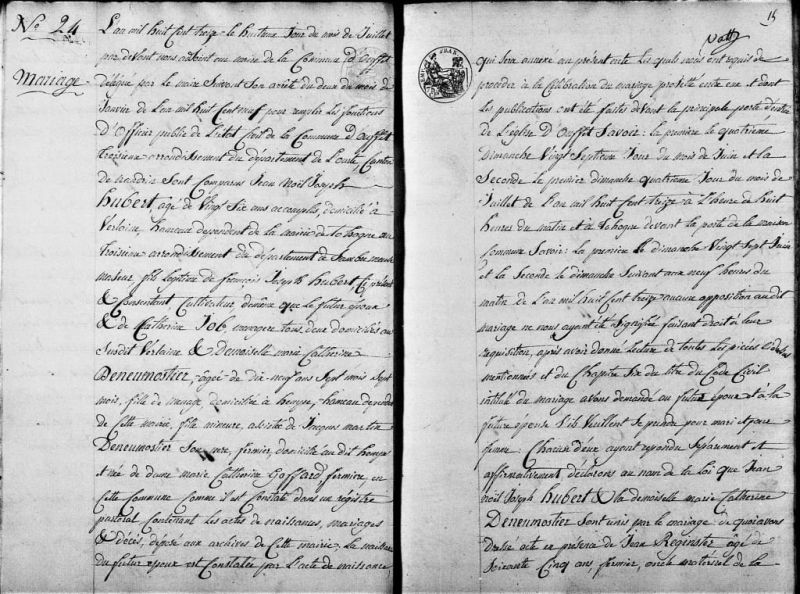 N° 24
Mariage
L'an mil huit Cent treize le huitieme Jour du mois de Juillet
par devant nous adjoint au maire de la Commune d'Ouffet
délégué par le maire Suivant Son arrêté du deux du mois de
Janvier de L'an mil huit Cent neuf pour remplir Les fonctions
d'Officier public de L'etat Civil de la Commune d'Ouffet
troisieme arrondissement du département de L'ourte Canton
de nandrin Sont Comparus Jean Noël Joseph
Hubert, agé de Vingt Six ans accomplis, domicilié à
Verlaine, hameau dependant de la mairie de tohogne au
troisieme arrondissement du departement de Sambre meuse
majeur fils legitime de francois Joseph Hubert Ci présent
& Consentant Cultivateur, demême que le futur époux
& de Catherine Job menagere tous deux domiciliés au
Susdit Verlaine & Demoiselle marie Catherine
Deneumostier, agée de dix neuf ans Sept mois Sept
mois, fille de menage, domiciliée à himpe, hameau dependant
de Cette mairie, fille mineure assistée de Jacques martin
Deneumostier Son pere, fermier, domicilié au dit himpe
et née de dame marie Catherine Goffard fermiere en
Cette Commune Comme il est Constaté dans un régistre
pastoral Contenant les actes de naissances, mariages
& décès, déposé aux archives de Cette mairie; La naissance
du futur époux est Constatée par L'acte de naissance
15
qui sera annexé au présent acte Les quels nous ont requis de
proceder à la Célébration du mariage projetté entre eux et dont
les publications ont été faites devant la principale porte d'entrée
de L'église d'Ouffet Savoir: la premiere le quatrieme
dimanche Vingt Septieme Jour du mois de Juin et la
Seconde le premier dimanche quatrieme Jour du mois de
Juillet de L'an mil huit Cent treize à L'heure de huit
heures du matin et à tohogne devant la porte de la maison
Commune Savoir: la premiere le dimanche Vingt Sept Juin
et la Seconde le dimanche Suivant aux neuf heures du
matin de L'an mil huit Cent treize aucune opposition au dit
mariage ne nous ayant été Signifiée faisant droit à leur
requisition, après avoir donné Lecture de toutes Les pieces
mentionnées et du Chapitre Six du titre du Code Civil
intitulé du mariage avons demandé au futur époux et à la
future épouse S'ils Veuillent Se prendre pour mari et pour
femme. Chacun d'eux ayant repondu Séparement et
affirmativement, déclarons au nom de la loi que Jean
noël Joseph Hubert & la demoiselle marie Catherine
Deneumostier Sont unis par le mariage de quoi avons
dressé acte en présence de Jean Reginster âgé de
Soixante Cinq ans, fermier, oncle maternel de la